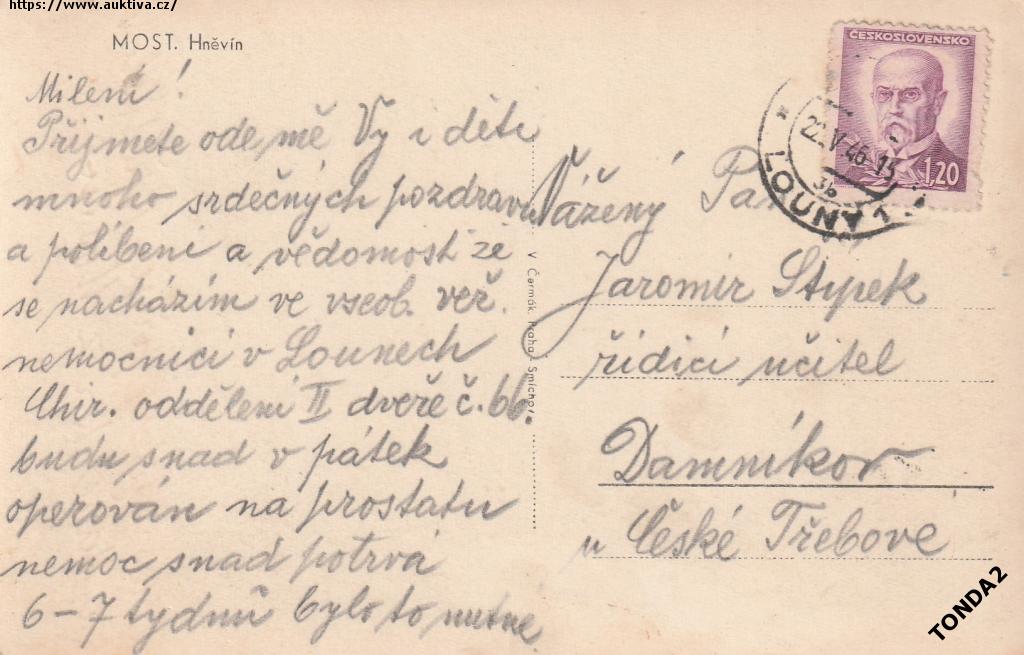 https://www.auktiva.cz/
MOST. Hněvín
Milení!
Přijmete ode mě Vy i děti
mnoho srdečných pozdravů
a políbení a vědomost že
se nacházím ve vseob. veř.
nemocnici v Lounech
Chir. oddělení II dveře č. 66.
budu snad v pátek
operován na prostatu
nemoc snad potrvá
6-7 tydnů bylo to nutne
V. Čermák, Praha - Smíchov.
ČESKOSLOVENSKO
1,20
22.V.46-13
3b
LOUNY 1
Vážený Pan
Jaromír Stypek
řídicí učitel
Damníkov
u České Třebove
TONDA2